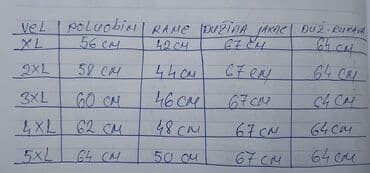 VEL | POLUOBIM | RAME | DUŽINA JAKNE | DUŽ. RUKAVA
XL | 56 cm | 42 cm | 67 cm | 64 cm
2XL | 58 cm | 44 cm | 67 cm | 64 cm
3XL | 60 cm | 46 cm | 67 cm | 64 cm
4XL | 62 cm | 48 cm | 67 cm | 64 cm
5XL | 64 cm | 50 cm | 67 cm | 64 cm